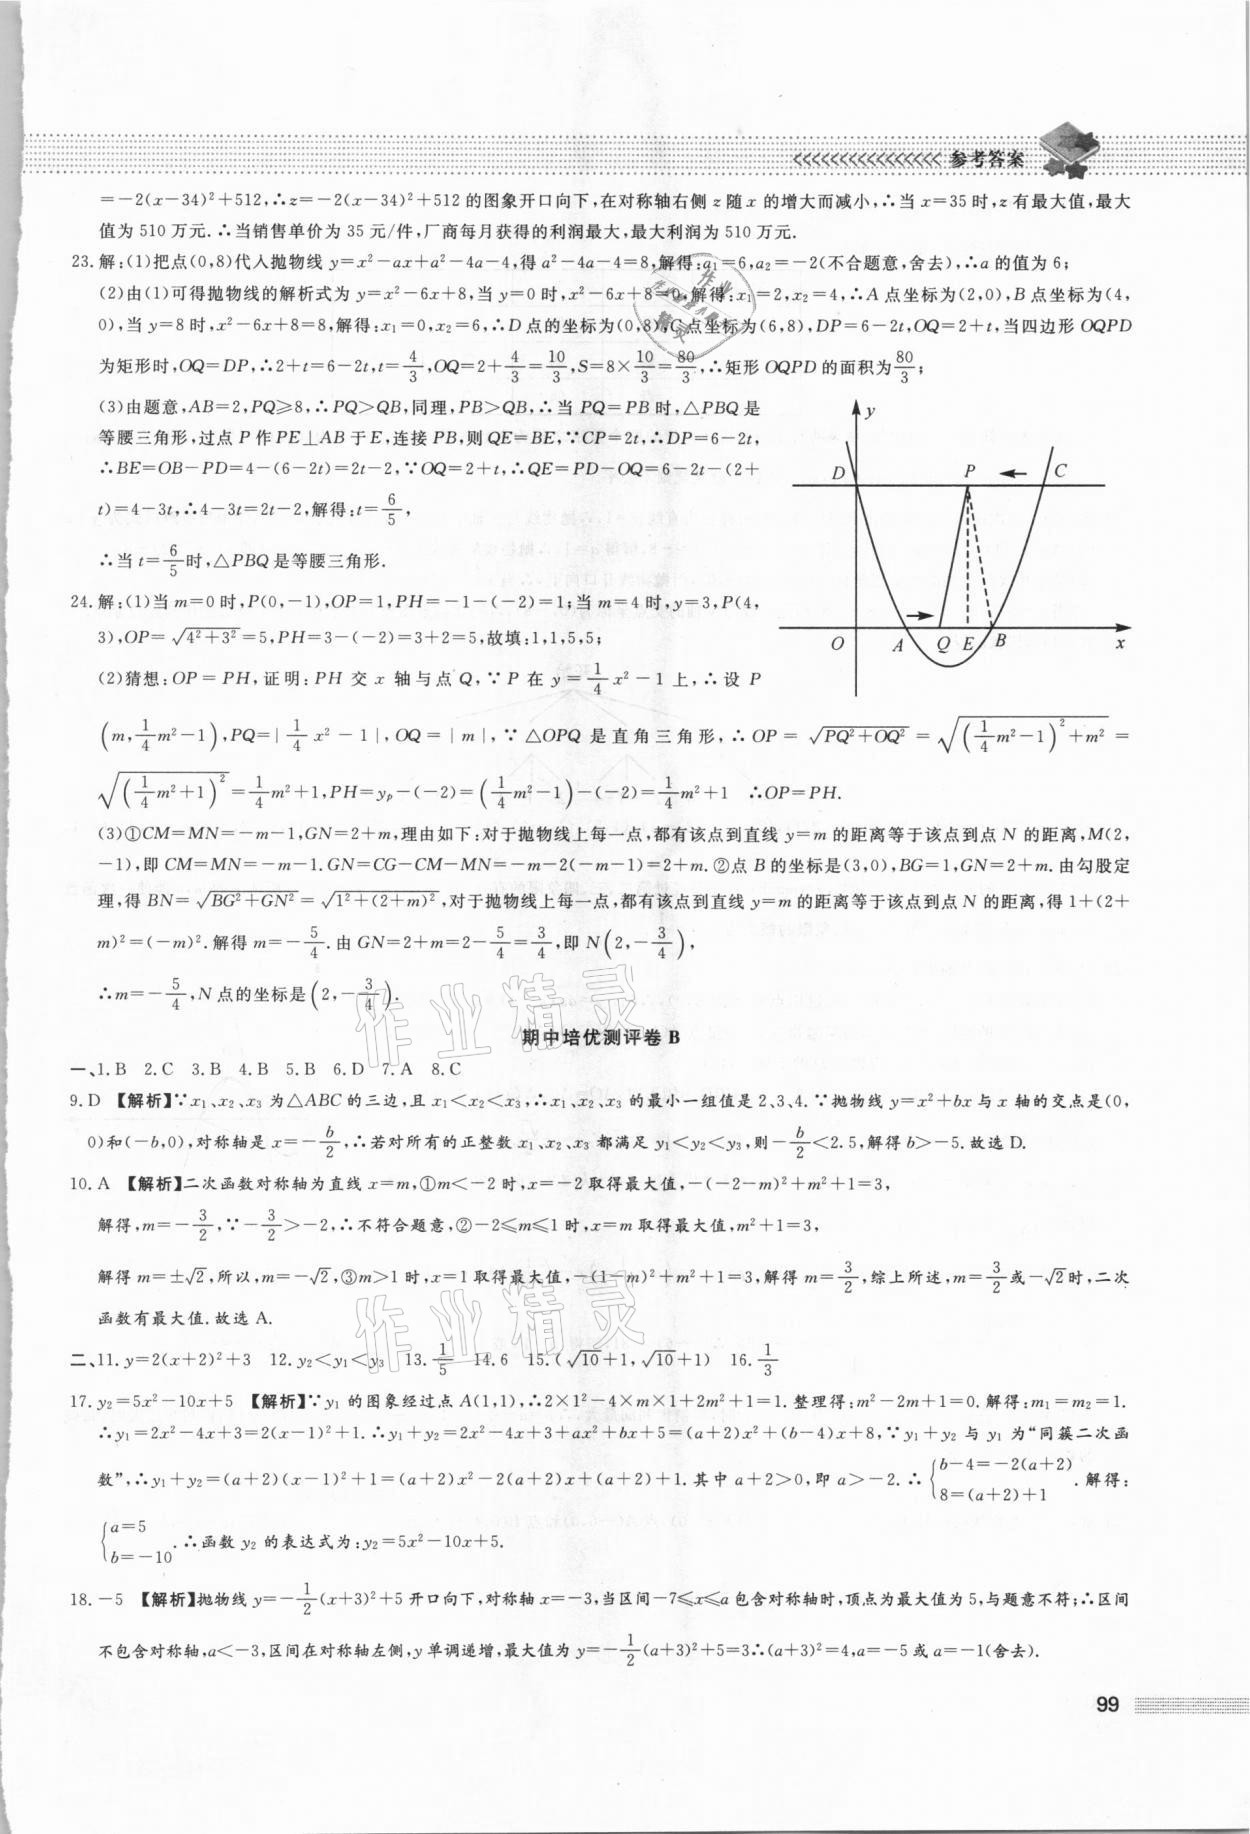 <<<<<<<<<<<<<<<< 参考答案
=-2(x-34)²+512,∴z=-2(x-34)²+512的图象开口向下,在对称轴右侧z随x的增大而减小,∴当x=35时,z有最大值,最大
值为510万元.∴当销售单价为35元/件,厂商每月获得的利润最大,最大利润为510万元.
23.解:(1)把点(0,8)代入抛物线y=x²-ax+a²-4a-4,得a²-4a-4=8,解得:a₁=6,a₂=-2(不合题意,舍去),∴a的值为6;
(2)由(1)可得抛物线的解析式为y=x²-6x+8,当y=0时,x²-6x+8=0,解得:x₁=2,x₂=4,∴A点坐标为(2,0),B点坐标为(4,
0),当y=8时,x²-6x+8=8,解得:x₁=0,x₂=6,∴D点的坐标为(0,8),C点坐标为(6,8),DP=6-2t,OQ=2+t,当四边形OQPD
为矩形时,OQ=DP,∴2+t=6-2t,t=4/3,OQ=2+4/3=10/3,S=8×10/3=80/3,∴矩形OQPD的面积为80/3;
(3)由题意,AB=2,PQ⩾8,∴PQ>QB,同理,PB>QB,∴当PQ=PB时,△PBQ是
等腰三角形,过点P作PE⊥AB于E,连接PB,则QE=BE,∵CP=2t,∴DP=6-2t,
∴BE=OB-PD=4-(6-2t)=2t-2,∵OQ=2+t,∴QE=PD-OQ=6-2t-(2+
t)=4-3t,∴4-3t=2t-2,解得:t=6/5,
∴当t=6/5时,△PBQ是等腰三角形.
y
D P C
O A Q E B x
24.解:(1)当m=0时,P(0,-1),OP=1,PH=-1-(-2)=1;当m=4时,y=3,P(4,
3),OP=√(4²+3²)=5,PH=3-(-2)=3+2=5,故填:1,1,5,5;
(2)猜想:OP=PH,证明:PH交x轴与点Q,∵P在y=1/4x²-1上,∴设P
(m,1/4m²-1),PQ=|1/4x²-1|,OQ=|m|,∵△OPQ是直角三角形,∴OP=√(PQ²+OQ²)=√((1/4m²-1)²+m²)=
√((1/4m²+1)²)=1/4m²+1,PH=yₚ-(-2)=(1/4m²-1)-(-2)=1/4m²+1 ∴OP=PH.
(3)①CM=MN=-m-1,GN=2+m,理由如下:对于抛物线上每一点,都有该点到直线y=m的距离等于该点到点N的距离,M(2,
-1),即CM=MN=-m-1.GN=CG-CM-MN=-m-2(-m-1)=2+m.②点B的坐标是(3,0),BG=1,GN=2+m.由勾股定
理,得BN=√(BG²+GN²)=√(1²+(2+m)²),对于抛物线上每一点,都有该点到直线y=m的距离等于该点到点N的距离,得1+(2+
m)²=(-m)².解得m=-5/4.由GN=2+m=2-5/4=3/4,即N(2,-3/4),
∴m=-5/4,N点的坐标是(2,-3/4).
期中培优测评卷B
一、1.B 2.C 3.B 4.B 5.B 6.D 7.A 8.C
9.D 【解析】∵x₁、x₂、x₃为△ABC的三边,且x₁<x₂<x₃,∴x₁、x₂、x₃的最小一组值是2、3、4.∵抛物线y=x²+bx与x轴的交点是(0,
0)和(-b,0),对称轴是x=-b/2,∴若对所有的正整数x₁、x₂、x₃都满足y₁<y₂<y₃,则-b/2<2.5,解得b>-5.故选D.
10.A 【解析】二次函数对称轴为直线x=m,①m<-2时,x=-2取得最大值,-(-2-m)²+m²+1=3,
解得,m=-3/2,∵-3/2>-2,∴不符合题意,②-2⩽m⩽1时,x=m取得最大值,m²+1=3,
解得m=±√2,所以,m=-√2,③m>1时,x=1取得最大值,-(1-m)²+m²+1=3,解得m=3/2,综上所述,m=3/2或-√2时,二次
函数有最大值.故选A.
二、11.y=2(x+2)²+3 12.y₂<y₁<y₃ 13.1/5 14.6 15.(√10+1,√10+1) 16.1/3
17.y₂=5x²-10x+5 【解析】∵y₁的图象经过点A(1,1),∴2×1²-4×m×1+2m²+1=1.整理得:m²-2m+1=0.解得:m₁=m₂=1.
∴y₁=2x²-4x+3=2(x-1)²+1.∴y₁+y₂=2x²-4x+3+ax²+bx+5=(a+2)x²+(b-4)x+8,∵y₁+y₂与y₁为“同簇二次函
数”,∴y₁+y₂=(a+2)(x-1)²+1=(a+2)x²-2(a+2)x+(a+2)+1.其中a+2>0,即a>-2.∴{b-4=-2(a+2) 8=(a+2)+1.解得:
{a=5 b=-10.∴函数y₂的表达式为:y₂=5x²-10x+5.
18.-5 【解析】抛物线y=-1/2(x+3)²+5开口向下,对称轴x=-3,当区间-7⩽x⩽a包含对称轴时,顶点为最大值为5,与题意不符;∴区间
不包含对称轴,a<-3,区间在对称轴左侧,y单调递增,最大值为y=-1/2(a+3)²+5=3∴(a+3)²=4,a=-5或a=-1(舍去).
99
作业精灵
作业精灵